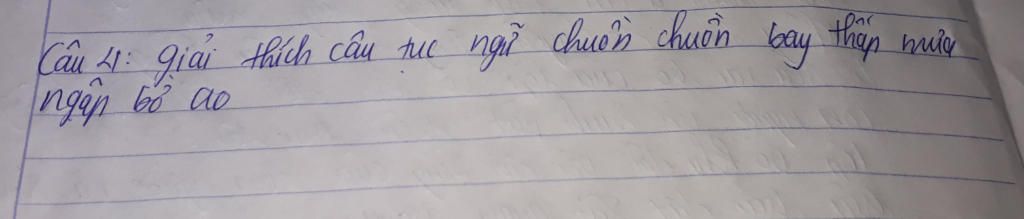 Câu 4: giải thích câu tục ngữ chuồn chuồn bay thấp mưa
ngập bờ ao